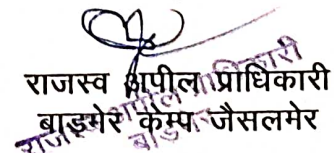 राजस्व अपील प्राधिकारी
बाड़मेर कैम्प जैसलमेर